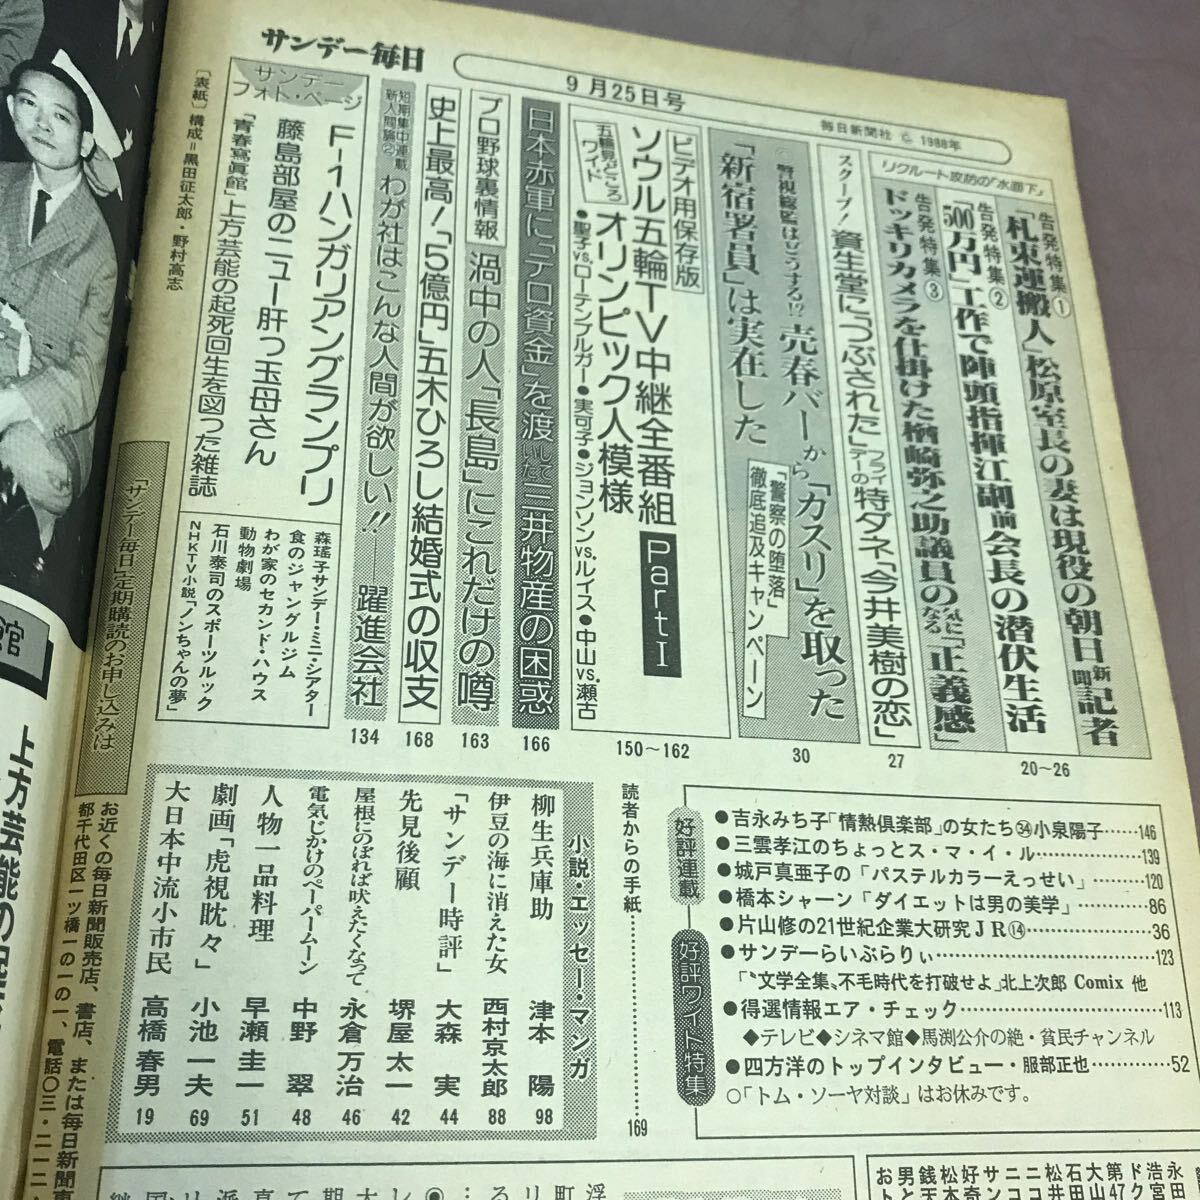 サンデー毎日
9月25日号
毎日新聞社 © 1988年
リクルート攻防の「水面下」
告発特集①
「札束運搬人」松原室長の妻は現役の朝日新聞記者
告発特集②
「500万円」工作で陣頭指揮江副前会長の潜伏生活
告発特集③
ドッキリカメラを仕掛けた楢崎弥之助議員の気になる「正義感」
20〜26
スクープ!
資生堂につぶされた「フライデー」の特ダネ「今井美樹の恋」
27
警視総監はどうする!?
売春バーから「カスリ」を取った
「新宿署員」は実在した
「警察の堕落」徹底追及キャンペーン
30
ビデオ用保存版
ソウル五輪TV中継全番組 Part I
五輪見どころワイド
オリンピック人模様
●聖子vs.ローテンブルガー●実可子●ジョンソンvs.ルイス●中山vs.瀬古
150〜162
日本赤軍に「テロ資金」を渡していた三井物産の困惑
166
プロ野球裏情報
渦中の人「長島」にこれだけの噂
163
史上最高!「5億円」五木ひろし結婚式の収支
168
短期集中連載
新人間論②
わが社はこんな人間が欲しい!!——躍進会社
134
サンデー
フォト・ページ
F-1ハンガリアングランプリ
藤島部屋のニュー肝っ玉母さん
「青春寫眞館」上方芸能の起死回生を図った雑誌
森瑤子サンデー・ミニ・シアター
食のジャングルジム
わが家のセカンド・ハウス
動物劇場
石川泰司のスポーツルック
NHKTV小説「ノンちゃんの夢」
〔表紙〕構成=黒田征太郎・野村高志
好評連載
●吉永みち子「情熱倶楽部」の女たち㉞小泉陽子……146
●三雲孝江のちょっとス・マ・イ・ル……139
●城戸真亜子の「パステルカラーえっせい」……120
●橋本シャーン「ダイエットは男の美学」……86
●片山修の21世紀企業大研究JR⑭……36
好評ワイド特集
●サンデーらいぶらりぃ……123
「“文学全集”不毛時代を打破せよ」北上次郎 Comix 他
●得選情報エア・チェック……113
◆テレビ◆シネマ館◆馬渕公介の絶・貧民チャンネル
●四方洋のトップインタビュー・服部正也……52
○「トム・ソーヤ対談」はお休みです。
読者からの手紙……169
小説・エッセー・マンガ
柳生兵庫助 津本陽 98
伊豆の海に消えた女 西村京太郎 88
「サンデー時評」 大森実 44
先見後顧 堺屋太一 42
屋根にのぼれば吠えたくなって 永倉万治 46
電気じかけのペーパームーン 中野翠 48
人物一品料理 早瀬圭一 51
劇画「虎視眈々」 小池一夫 69
大日本中流小市民 高橋春男 19
「サンデー毎日」定期購読のお申し込みは
お近くの毎日新聞販売店、書店、または毎日新聞東
都千代田区一ツ橋一の一の一、電話〇三・二一二
館